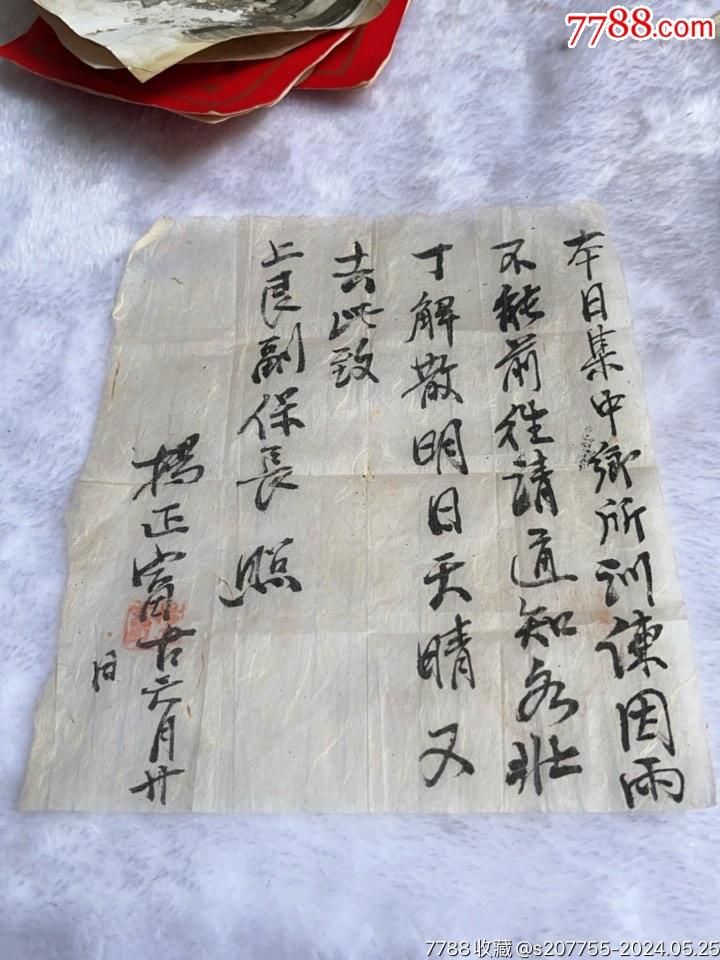 7788.com
本日集中鄉所训練因雨
不能前往請通知各壯
丁解散明日天晴又
去此致
上良副保長 照
楊正富 古六月廿
日
7788收藏@s207755-2024.05.25